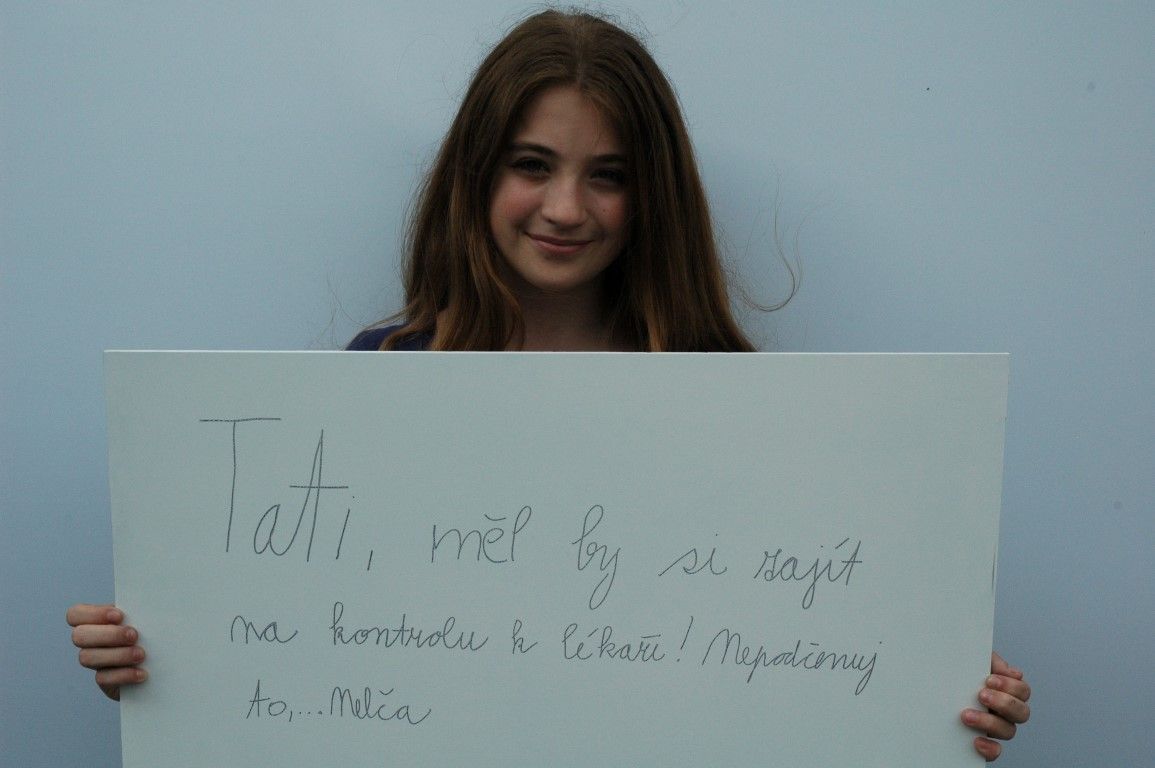 Tati, měl by si zajít
na kontrolu k lékaři! Nepodcenuj
to,... Melča